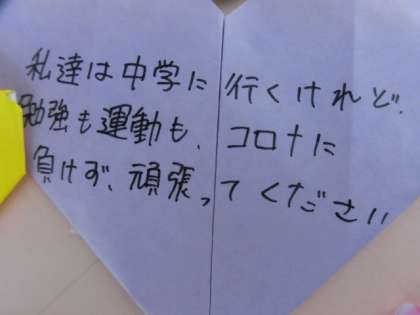 私達は中学に行くけれど、
勉強も運動も、コロナに
負けず、頑張ってください